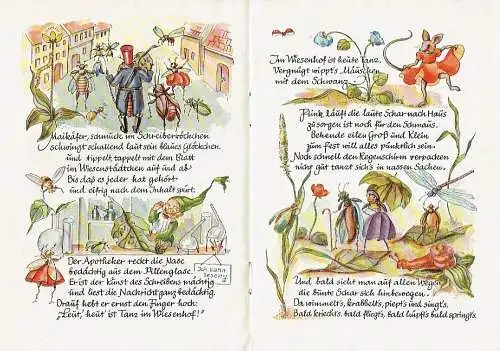 Maikäfer, schmuck im Schreiberröckchen
schwingt schallend laut sein blaues Glöckchen
und tippelt tappelt mit dem Blatt
im Wiesenstädtchen auf und ab
Bis daß es jeder hat gehört
und eifrig nach dem Inhalt spürt.
Der Apotheker reckt die Nase
bedächtig aus dem Pillenglase.
Er ist der Kunst des Schreibens mächtig
und liest die Nachricht ganz bedächtig.
Drauf hebt er ernst den Finger hoch:
„Leut', heut' ist Tanz im Wiesenhof!"
Im Wiesenhof ist heute Tanz.
Vergnügt wippt's Mäuschen
mit dem Schwanz.
Flink läuft die laute Schar nach Haus
zu sorgen ist noch für den Schmaus.
Behende eilen Groß und Klein
zum Fest will alles pünktlich sein.
Noch schnell den Regenschirm verpacken
nicht gut tanzt sich's in nassen Sachen.
Und bald sieht man auf allen Wegen
die bunte Schar sich hinbewegen.
Da wimmelt's, krabbelt's, piept's und singt's.
Bald kriecht's, bald fliegt's, bald lupft's bald springt's.